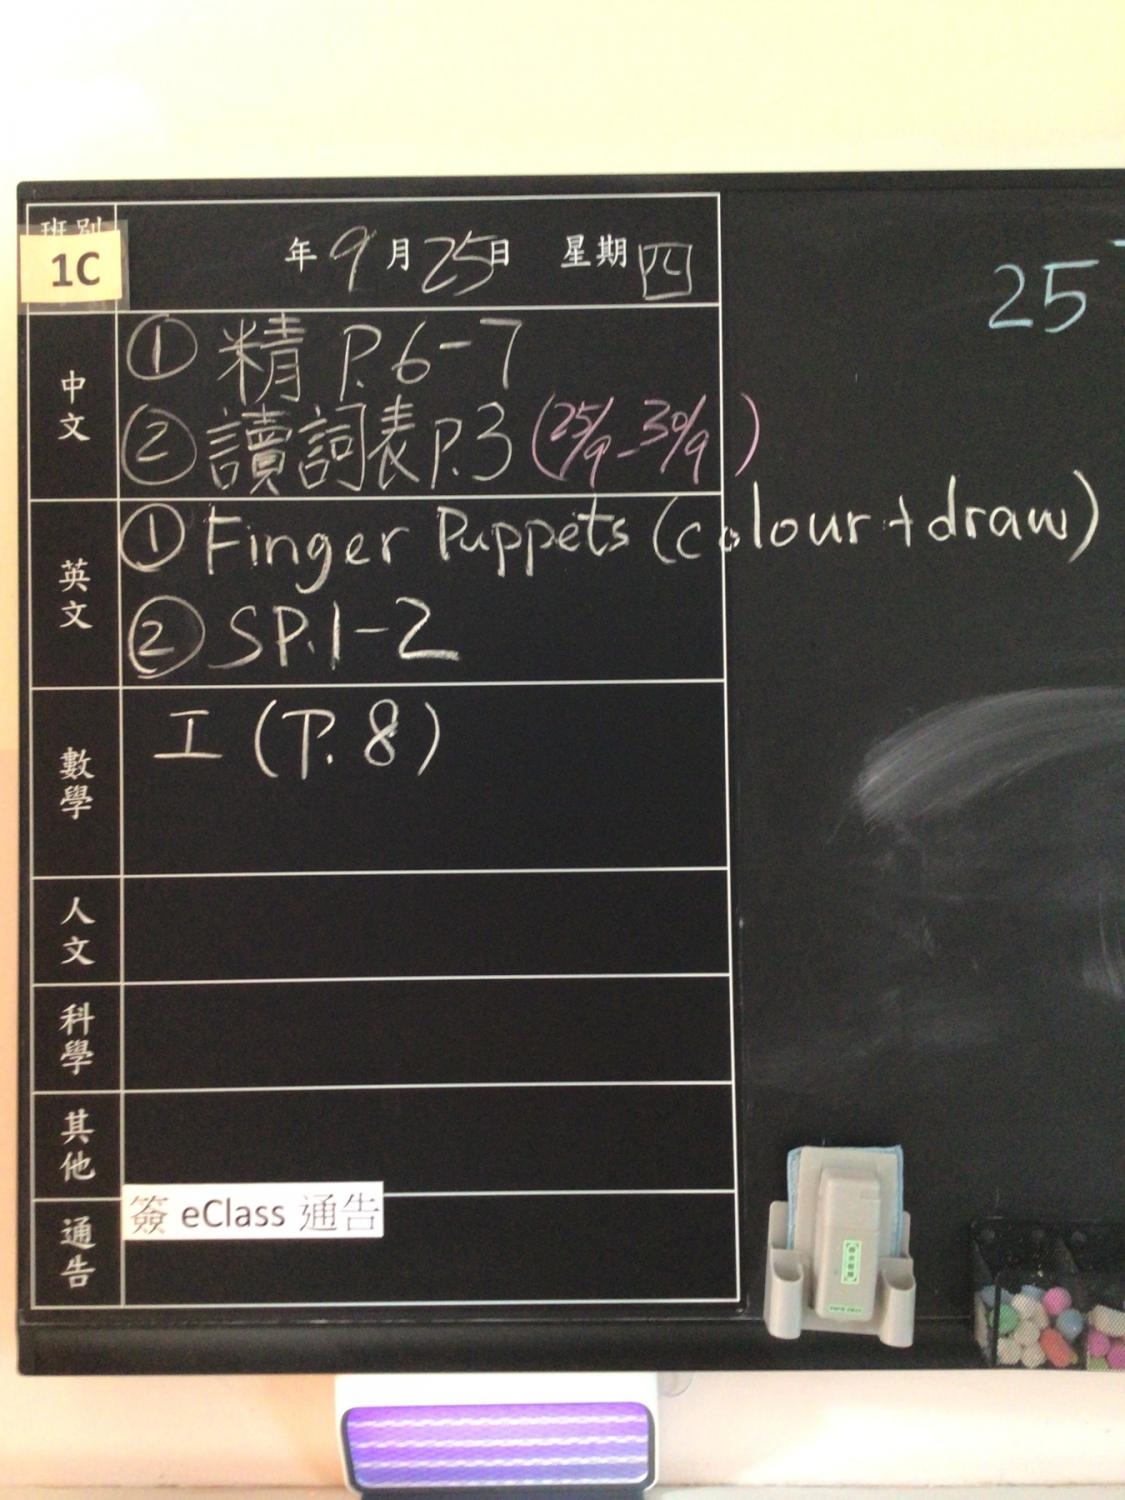 班別
1C
年 9 月 25 日 星期 四
25
中文
① 精 P.6-7
② 讀詞表 P.3 (25/9-30/9)
英文
① Finger Puppets (colour + draw)
② SP.1-2
數學
工 (P. 8)
人文
科學
其他
通告
簽 eClass 通告